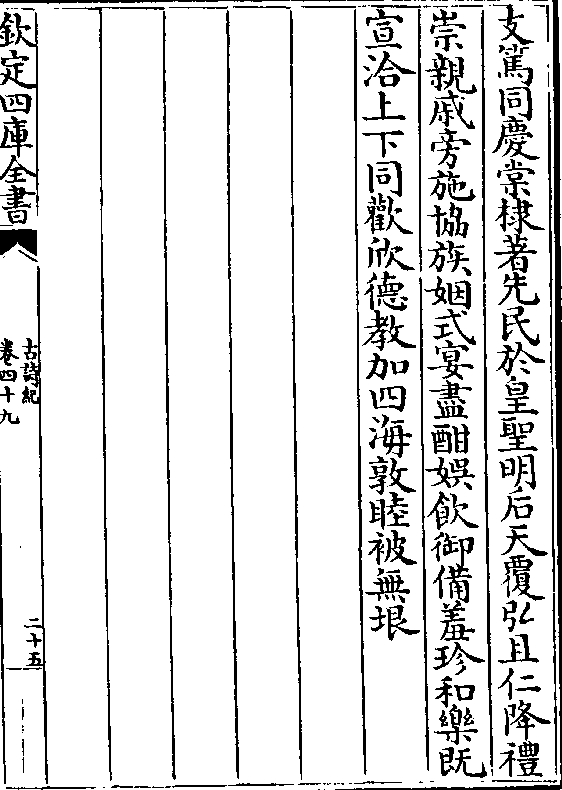 支篤同慶棠棣著先民於皇聖明后天覆弘且仁降禮
崇親戚旁施協族姻式宴盡酣娯飲御備羞珍和樂既
宣洽上下同歡欣德教加四海敦睦被無垠
欽定四庫全書
古詩紀
卷四十九
二十五